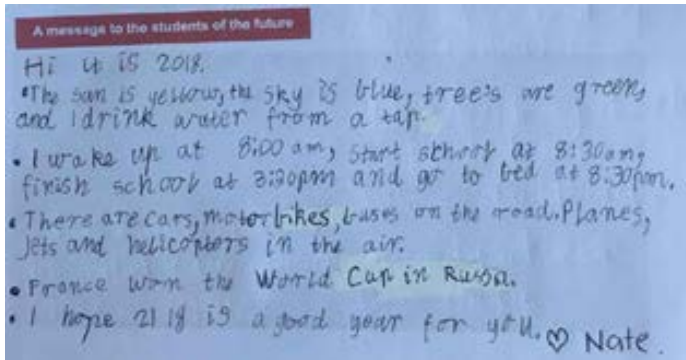 A message to the students of the future
Hi it is 2018.
• The sun is yellow, the sky is blue, tree's are green,
and I drink water from a tap.
• I wake up at 8:00 am, start school at 8:30am,
finish school at 3:20pm and go to bed at 8:30pm.
• There are cars, motorbikes, buses on the road. Planes,
Jets and helicopters in the air.
• France won the World Cup in Russa.
• I hope 2118 is a good year for you. ♡ Nate.